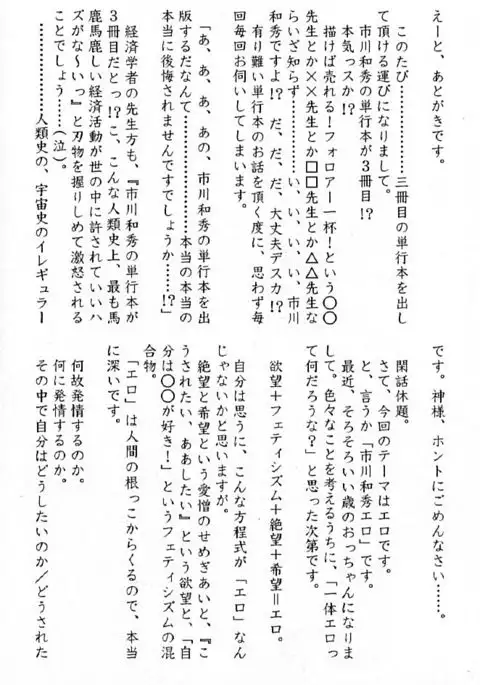 えーと、あとがきです。
このたび…………三冊目の単行本を出し
て頂ける運びになりまして。
市川和秀の単行本が３冊目!?
本気っスか!?
描けば売れる！フォロアー一杯！という〇〇
先生とか××先生とか□□先生とか△△先生な
らいざ知らず…………い、い、い、い、市川
和秀ですよ!?　だ、だ、だ、大丈夫デスカ!?
有り難い単行本のお話を頂く度に、思わず毎
回毎回お伺いしてしまいます。
「あ、あ、あ、あの、市川和秀の単行本を出
版するだなんて…………本当の本当の
本当に後悔されませんですでしょうか……!?」
経済学者の先生方も、『市川和秀の単行本が
３冊目だとっ!?こ、こんな人類史上、最も馬
鹿馬鹿しい経済活動が世の中に許されていいハ
ズがな～いっ』と刃物を握りしめて激怒される
ことでしょう……（泣）。
…………………人類史の、宇宙史のイレギュラー
です。神様、ホントにごめんなさい……。
閑話休題。
さて、今回のテーマはエロです。
と、言うか「市川和秀エロ」です。
最近、そろそろいい歳のおっちゃんになりま
して。色々なことを考えるうちに、「一体エロっ
て何だろうな？」と思った次第です。
欲望＋フェティシズム＋絶望＋希望＝エロ。
自分は思うに、こんな方程式が「エロ」なん
じゃないかと思いますが。
絶望と希望という愛憎のせめぎあいと、『こ
うされたい、ああしたい』という欲望と、「自
分は〇〇が好き！」というフェティシズムの混
合物。
「エロ」は人間の根っこからくるので、本当
に深いです。
何故発情するのか。
何に発情するのか。
その中で自分はどうしたいのか／どうされた